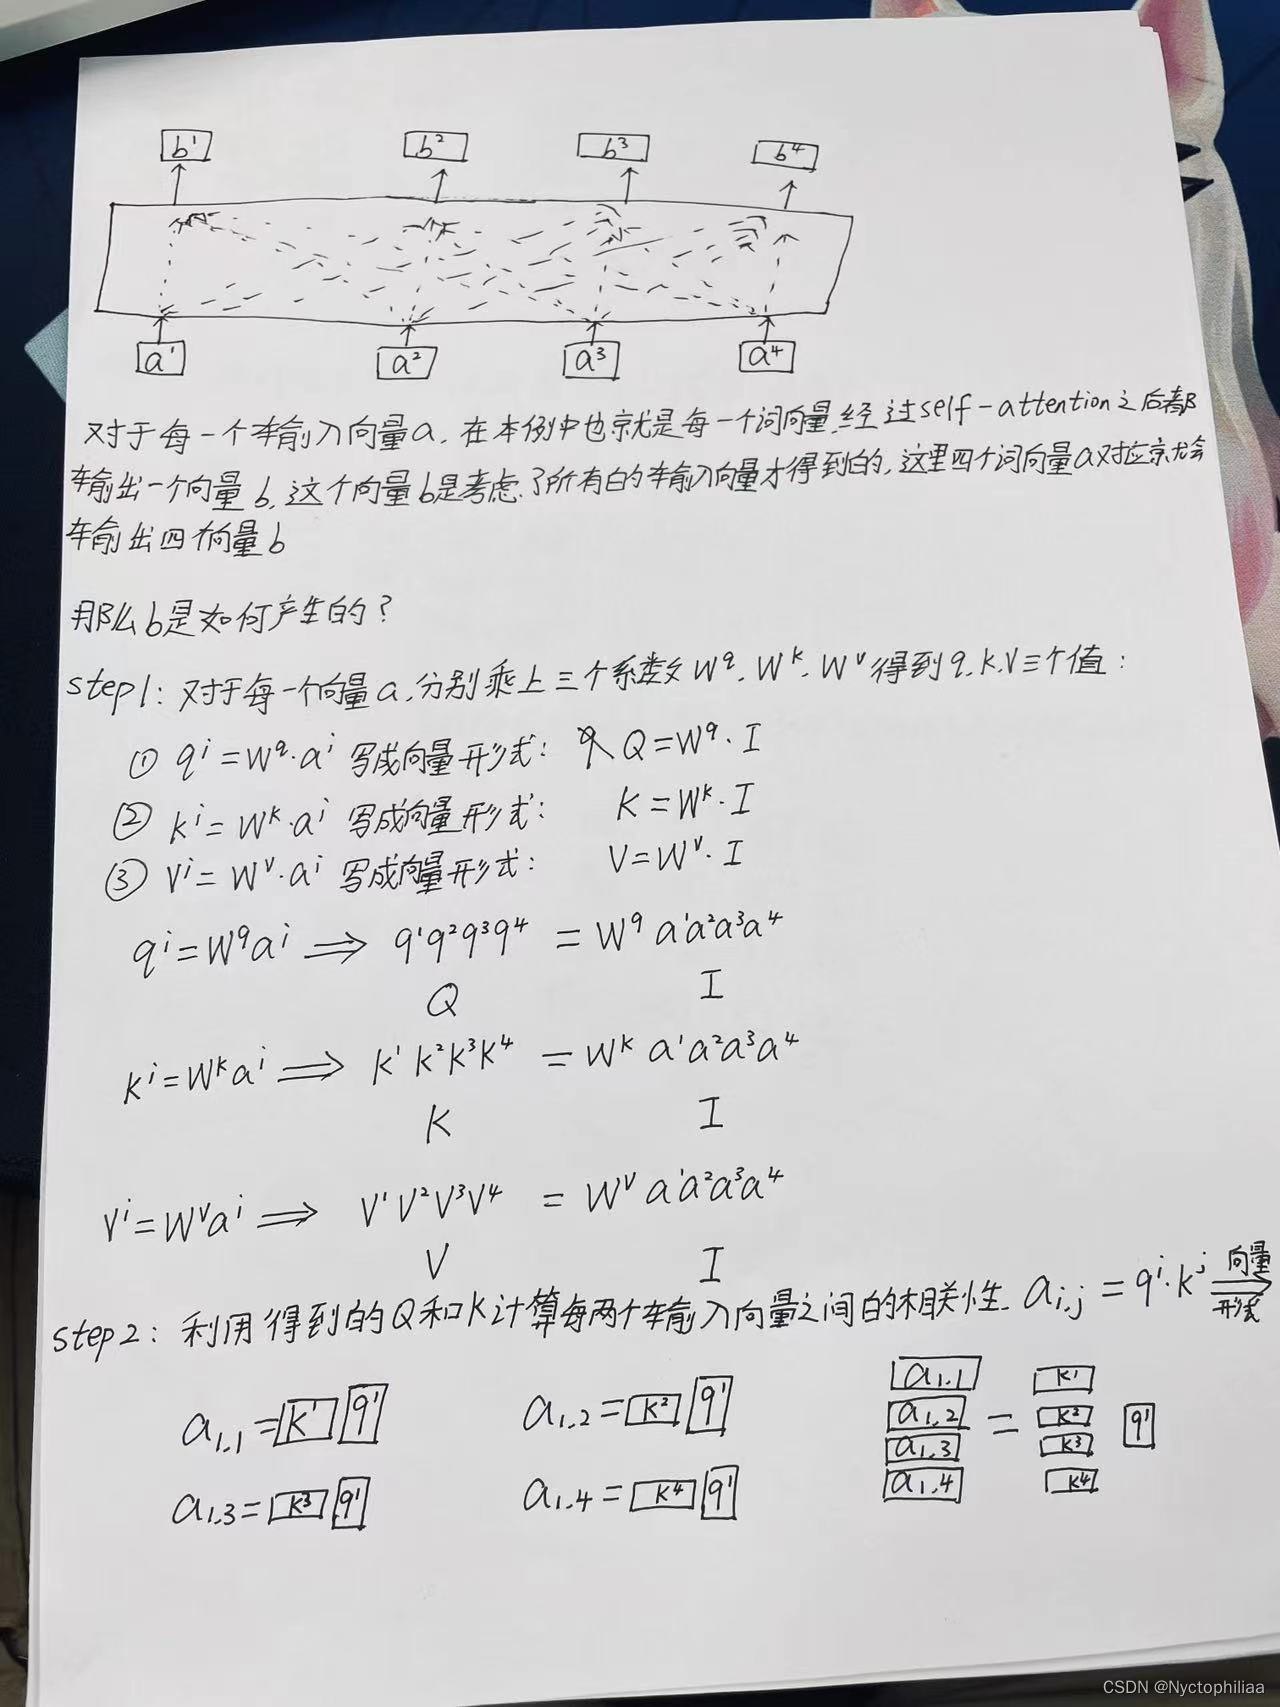 b¹ b² b³ b⁴
a¹ a² a³ a⁴
对于每一个输入向量a,在本例中也就是每一个词向量,经过self-attention之后都
输出一个向量b,这个向量b是考虑了所有的输入向量才得到的,这里四个词向量a对应就会
输出四个向量b
那么b是如何产生的?
step1:对于每一个向量a,分别乘上三个系数Wq、Wk、Wv得到q、k、v三个值:
① qⁱ=Wq·aⁱ 写成向量形式: Q=Wq·I
② kⁱ=Wk·aⁱ 写成向量形式: K=Wk·I
③ vⁱ=Wv·aⁱ 写成向量形式: V=Wv·I
qⁱ=Wqaⁱ ⟹ q¹q²q³q⁴ = Wq a¹a²a³a⁴
Q I
kⁱ=Wkaⁱ ⟹ k¹k²k³k⁴ = Wk a¹a²a³a⁴
K I
vⁱ=Wvaⁱ ⟹ v¹v²v³v⁴ = Wv a¹a²a³a⁴
V I
step2:利用得到的Q和K计算每两个输入向量之间的相关性. a i,j = qⁱ·kʲ 向量形式
a1,1= k¹ q¹ a1,2= k² q¹
a1,3= k³ q¹ a1,4= k⁴ q¹
a1,1 k¹
a1,2 = k² q¹
a1,3 k³
a1,4 k⁴
CSDN @Nyctophiliaa